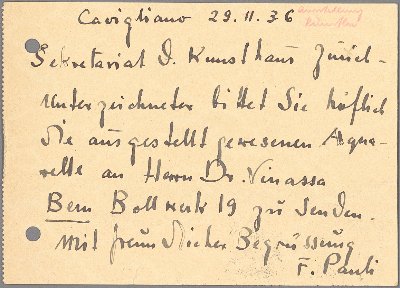 Cavigliano 29.11.36
Ausstellung
Sekretariat d. Kunsthaus Zürich-
Unterzeichneter bittet Sie höflich
die ausgestellt gewesenen Aqua-
relle an Herrn Dr. Vinassa
Bern Bollwerk 19 zu senden.
Mit freundlicher Begrüssung
F. Pauli